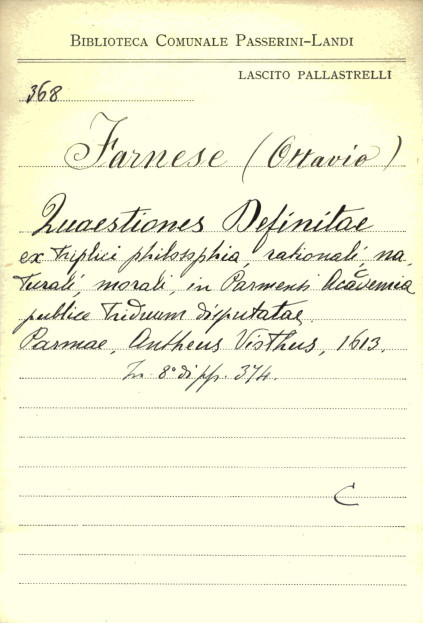 BIBLIOTECA COMUNALE PASSERINI-LANDI
LASCITO PALLASTRELLI
368
Farnese (Ottavio)
Quaestiones Definitae
ex triplici philosophia, rationali, na,
turali, morali, in Parmensi Academia
publice triduum disputatae.
Parmae, Antheus Visthus, 1613.
In 8° di pp. 374.
C